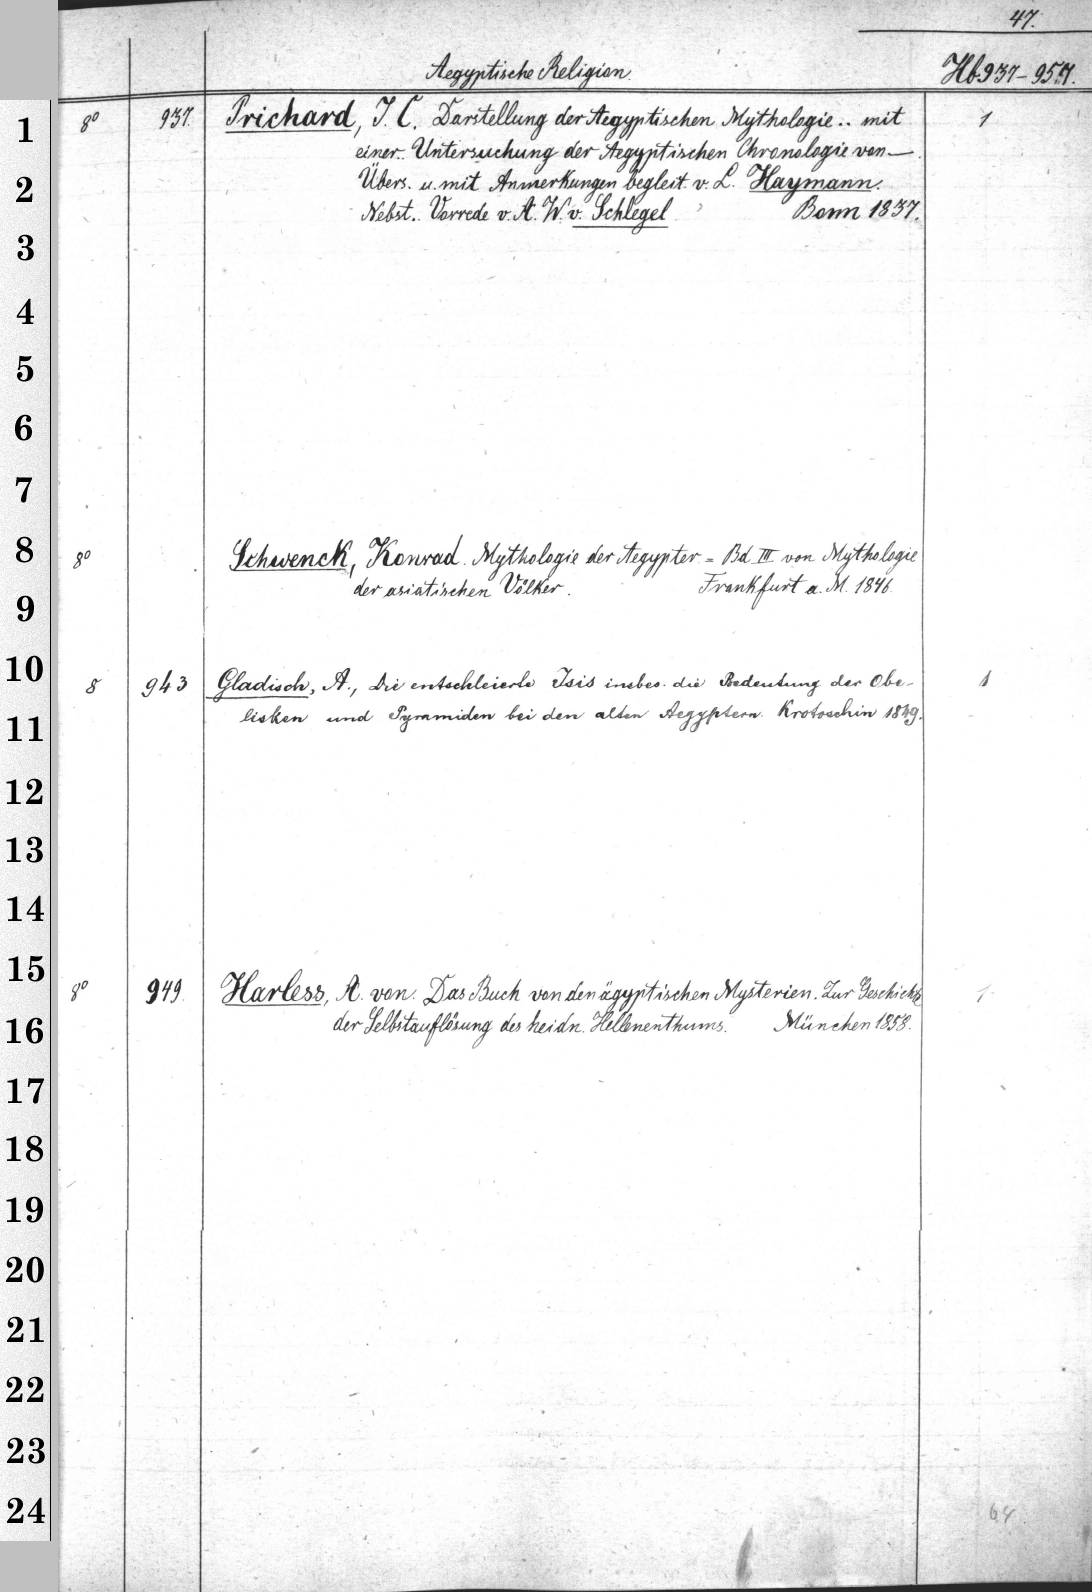 47.
Aegyptische Religion. Hb 937-957.
1 8° 937. Prichard, J. C. Darstellung der Aegyptischen Mythologie.. mit 1
einer.. Untersuchung der Aegyptischen Chronologie von —.
2 Übers. u. mit Anmerkungen begleit. v. L. Haymann.
Nebst.. Vorrede v. A. W. v. Schlegel Bonn 1837.
3
4
5
6
7
8 8° Schwenck, Konrad. Mythologie der Aegypter = Bd. III von Mythologie
9 der asiatischen Völker. Frankfurt a. M. 1846.
10 8 943 Gladisch, A., Die entschleierte Isis insbes. die Bedeutung der Obe- 1
11 lisken und Pyramiden bei den alten Aegyptern. Krotoschin 1849.
12
13
14
15 8° 949. Harless, A. von. Das Buch von den ägyptischen Mysterien. Zur Geschichte 1
16 der Selbstauflösung des heidn. Hellenenthums. München 1858.
17
18
19
20
21
22
23
24 64